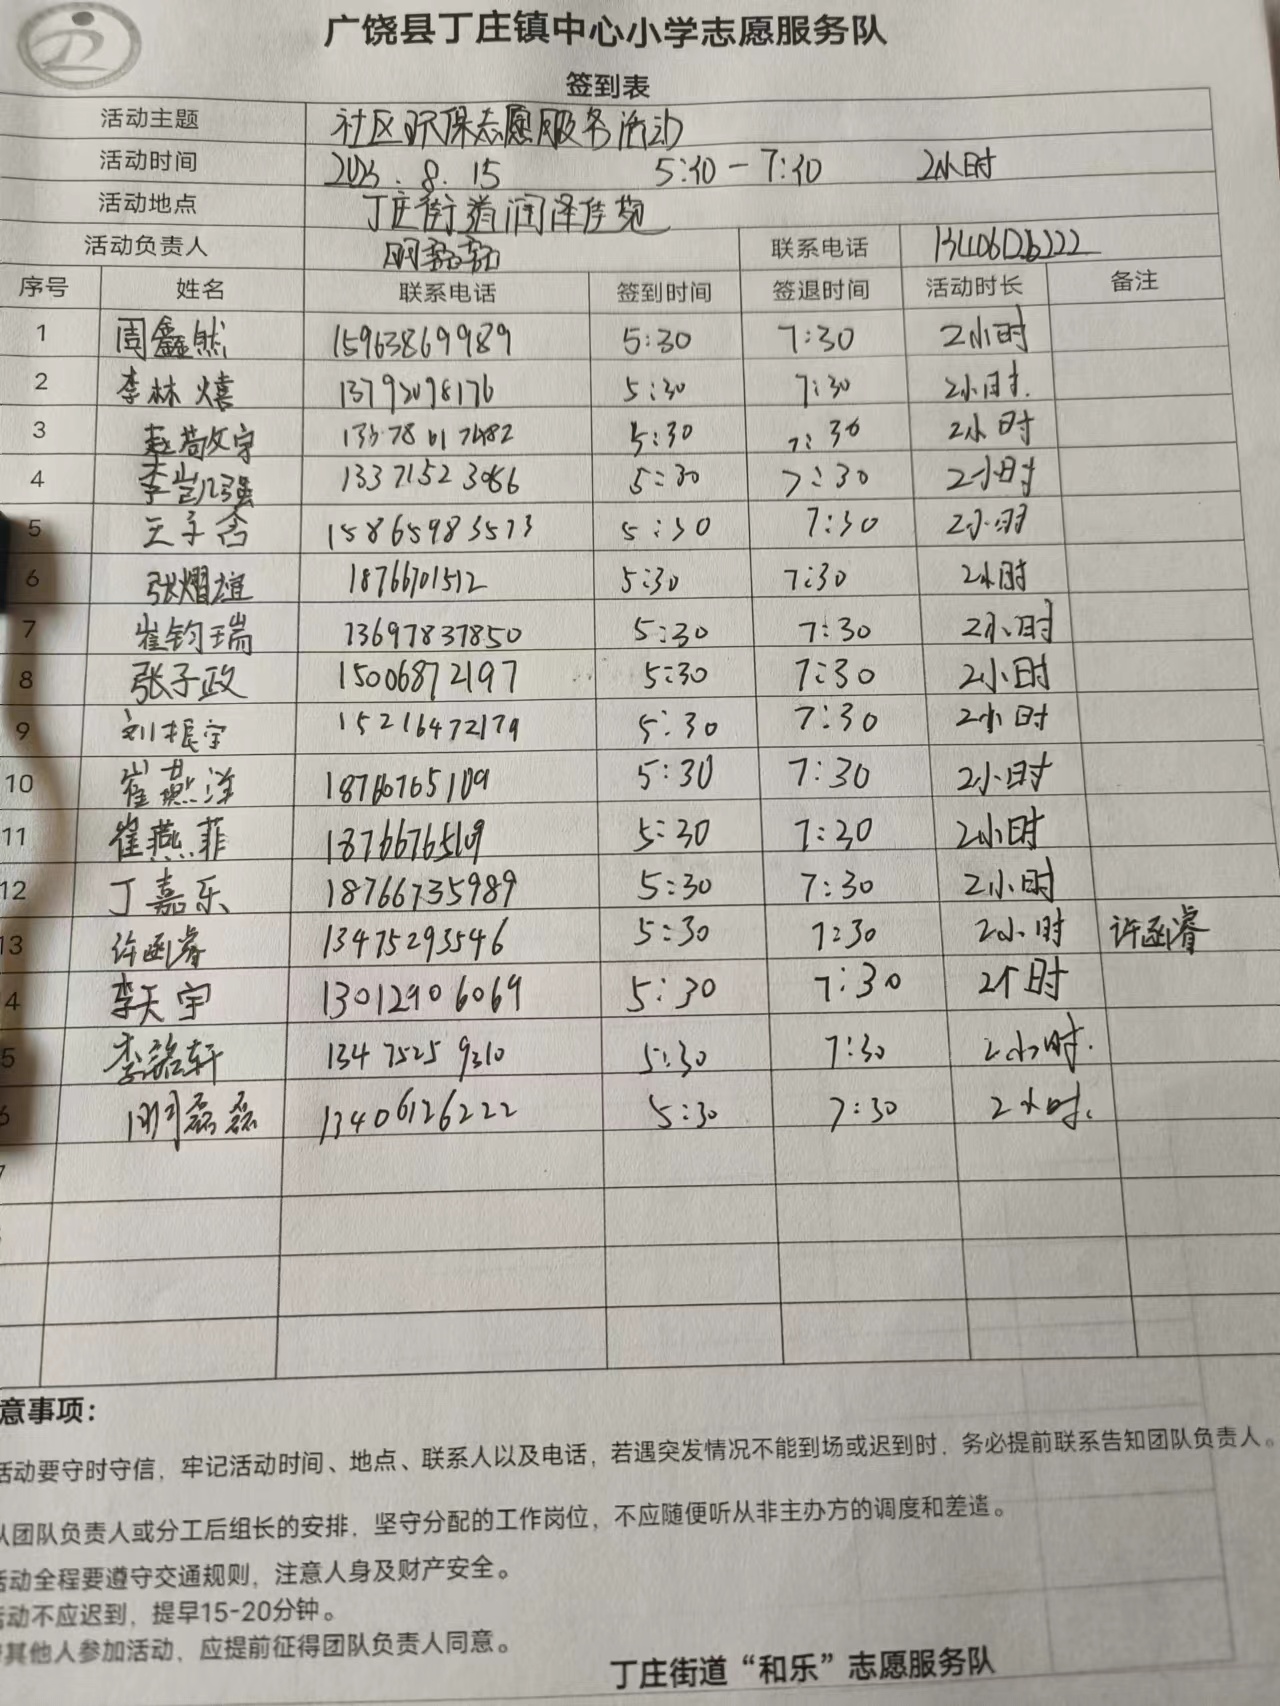 广饶县丁庄镇中心小学志愿服务队
签到表
活动主题 社区环保志愿服务活动
活动时间 2025.8.15 5:30-7:30 2小时
活动地点 丁庄街道润泽佳苑
活动负责人 联系电话 13406126222
序号 姓名 联系电话 签到时间 签退时间 活动时长 备注
1 周鑫然 15963869989 5:30 7:30 2小时
2 李林熺 13792098176 5:30 7:30 2小时.
3 5:30 7:30 2小时
4 李凯强 13371523086 5:30 7:30 2小时
5 王子含 15865983573 5:30 7:30 2小时
6 18766701512 5:30 7:30 2小时
7 崔钧瑞 13697837850 5:30 7:30 2小时
8 张子政 15006872197 5:30 7:30 2小时
9 刘振宇 15216472179 5:30 7:30 2小时
10 崔燕洋 18766765109 5:30 7:30 2小时
11 崔燕菲 18766765109 5:30 7:30 2小时
12 丁嘉乐 18766735989 5:30 7:30 2小时
13 许函睿 13475293546 5:30 7:30 2小时 许函睿
4 李天宇 13012906069 5:30 7:30 2小时
5 13475259310 5:30 7:30 2小时.
6 明磊磊 13406126222 5:30 7:30 2小时.
7
意事项：
活动要守时守信，牢记活动时间、地点、联系人以及电话，若遇突发情况不能到场或迟到时，务必提前联系告知团队负责人。
从团队负责人或分工后组长的安排，坚守分配的工作岗位，不应随便听从非主办方的调度和差遣。
活动全程要遵守交通规则，注意人身及财产安全。
活动不应迟到，提早15-20分钟。
其他人参加活动，应提前征得团队负责人同意。
丁庄街道“和乐”志愿服务队